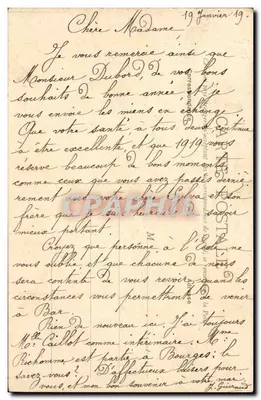 19 Janvier 19.
Chère Madame,
Je vous remercie ainsi que
Monsieur Dubord, de vos bons
souhaits de bonne année, et je
vous envoie les miens en échange
Que votre santé à tous deux continue
à être excellente, et que 1919 vous
réserve beaucoup de bons moments
comme ceux que vous avez passés derniè
rement et son
frère que je suis savoir
mieux portant.
Croyez que personne à l'Ecole ne
vous oublie et que chacune de nous
sera contente de vous revoir quand les
circonstances vous permettront de venir
à Bar.
Rien de nouveau ici. J'ai toujours
Mlle Caillot comme intérimaire; Mme
Richomme est partie à Bourges; le
savez-vous? D'affectueux baisers pour
vous, et mon bon souvenir à votre mari.
CARTE POSTALE